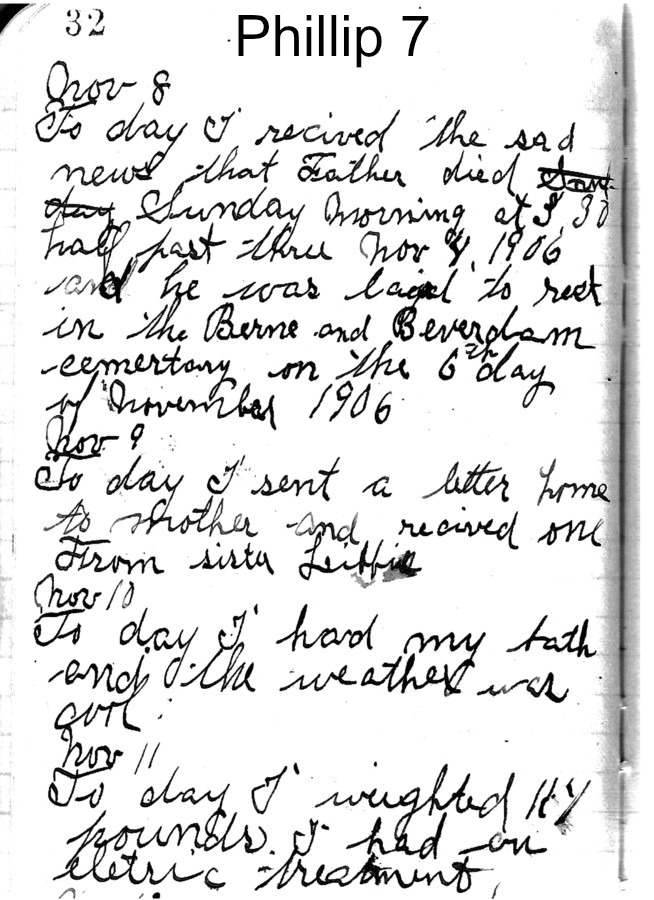 32
Phillip 7
Nov 8
To day I recived the sad
news that Father died Sun
day Sunday Morning at 3,30
half past three Nov 4, 1906
and he was laid to rest
in the Berne and Beverdam
cemertary on the 6th day
of November 1906
Nov 9
To day I sent a letter home
to Mother and recived one
From sister
Nov 10
To day I had my bath
and the weather was
cool.
Nov 11
To day I weighted
pounds. I had an
eletric treatment,